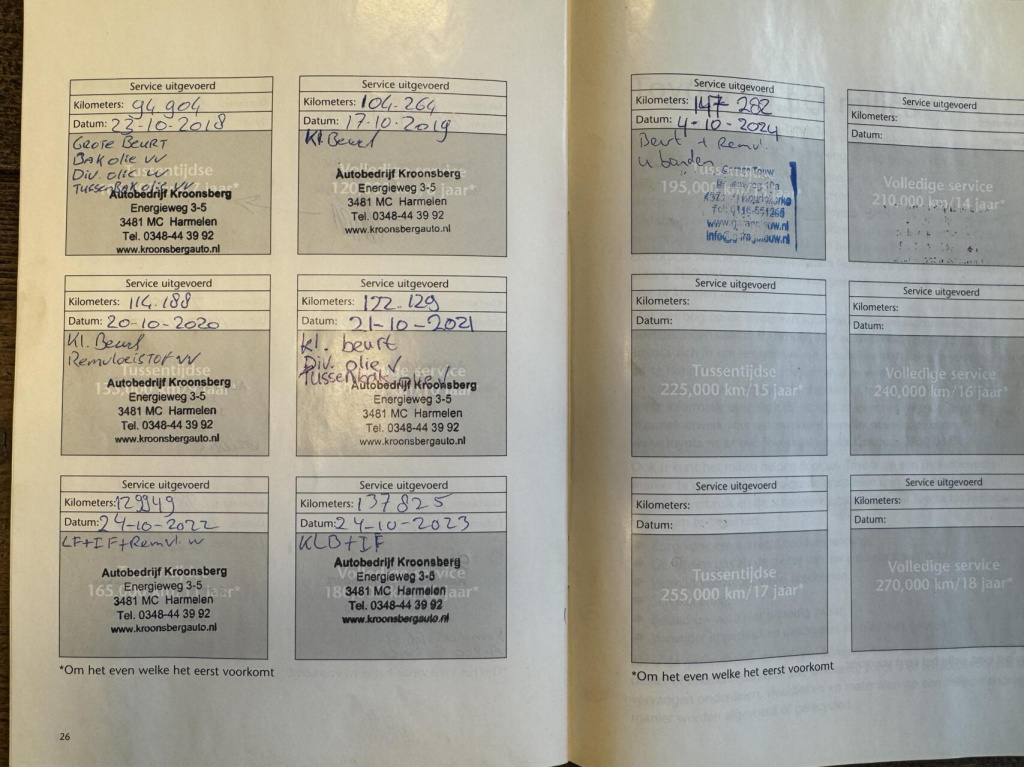 Service uitgevoerd
Kilometers: 94 904
Datum: 23-10-2018
GROTE BEURT
BAK olie VV
Div. olie VV
Tussen BAK olie VV
Tussentijdse
Autobedrijf Kroonsberg
Energieweg 3-5
3481 MC Harmelen
Tel. 0348-44 39 92
www.kroonsbergauto.nl
Service uitgevoerd
Kilometers: 104-264
Datum: 17-10-2019
Kl Beurt
Autobedrijf Kroonsberg
Energieweg 3-5
3481 MC Harmelen
Tel. 0348-44 39 92
www.kroonsbergauto.nl
Service uitgevoerd
Kilometers: 114.188
Datum: 20-10-2020
Kl. Beurt
RemvloeiSTOF VV
Tussentijdse
Autobedrijf Kroonsberg
Energieweg 3-5
3481 MC Harmelen
Tel. 0348-44 39 92
www.kroonsbergauto.nl
Service uitgevoerd
Kilometers: 122-129
Datum: 21-10-2021
kl. beurt
Div. olie √
Tussenbak olie √
Autobedrijf Kroonsberg
Energieweg 3-5
3481 MC Harmelen
Tel. 0348-44 39 92
www.kroonsbergauto.nl
Service uitgevoerd
Kilometers: 129949
Datum: 24-10-2022
LF+IF+Remvl. vv
Tussentijdse
Autobedrijf Kroonsberg
Energieweg 3-5
3481 MC Harmelen
Tel. 0348-44 39 92
www.kroonsbergauto.nl
Service uitgevoerd
Kilometers: 137825
Datum: 24-10-2023
KLB+IF
Autobedrijf Kroonsberg
Energieweg 3-5
3481 MC Harmelen
Tel. 0348-44 39 92
www.kroonsbergauto.nl
*Om het even welke het eerst voorkomt
26
Service uitgevoerd
Kilometers: 147 282
Datum: 4-10-2024
Beurt + Remvl.
4 banden
Tussentijdse
195,000 km/13 jaar*
Service uitgevoerd
Kilometers:
Datum:
Volledige service
210,000 km/14 jaar*
Service uitgevoerd
Kilometers:
Datum:
Tussentijdse
225,000 km/15 jaar*
Service uitgevoerd
Kilometers:
Datum:
Volledige service
240,000 km/16 jaar*
Service uitgevoerd
Kilometers:
Datum:
Tussentijdse
255,000 km/17 jaar*
Service uitgevoerd
Kilometers:
Datum:
Volledige service
270,000 km/18 jaar*
*Om het even welke het eerst voorkomt